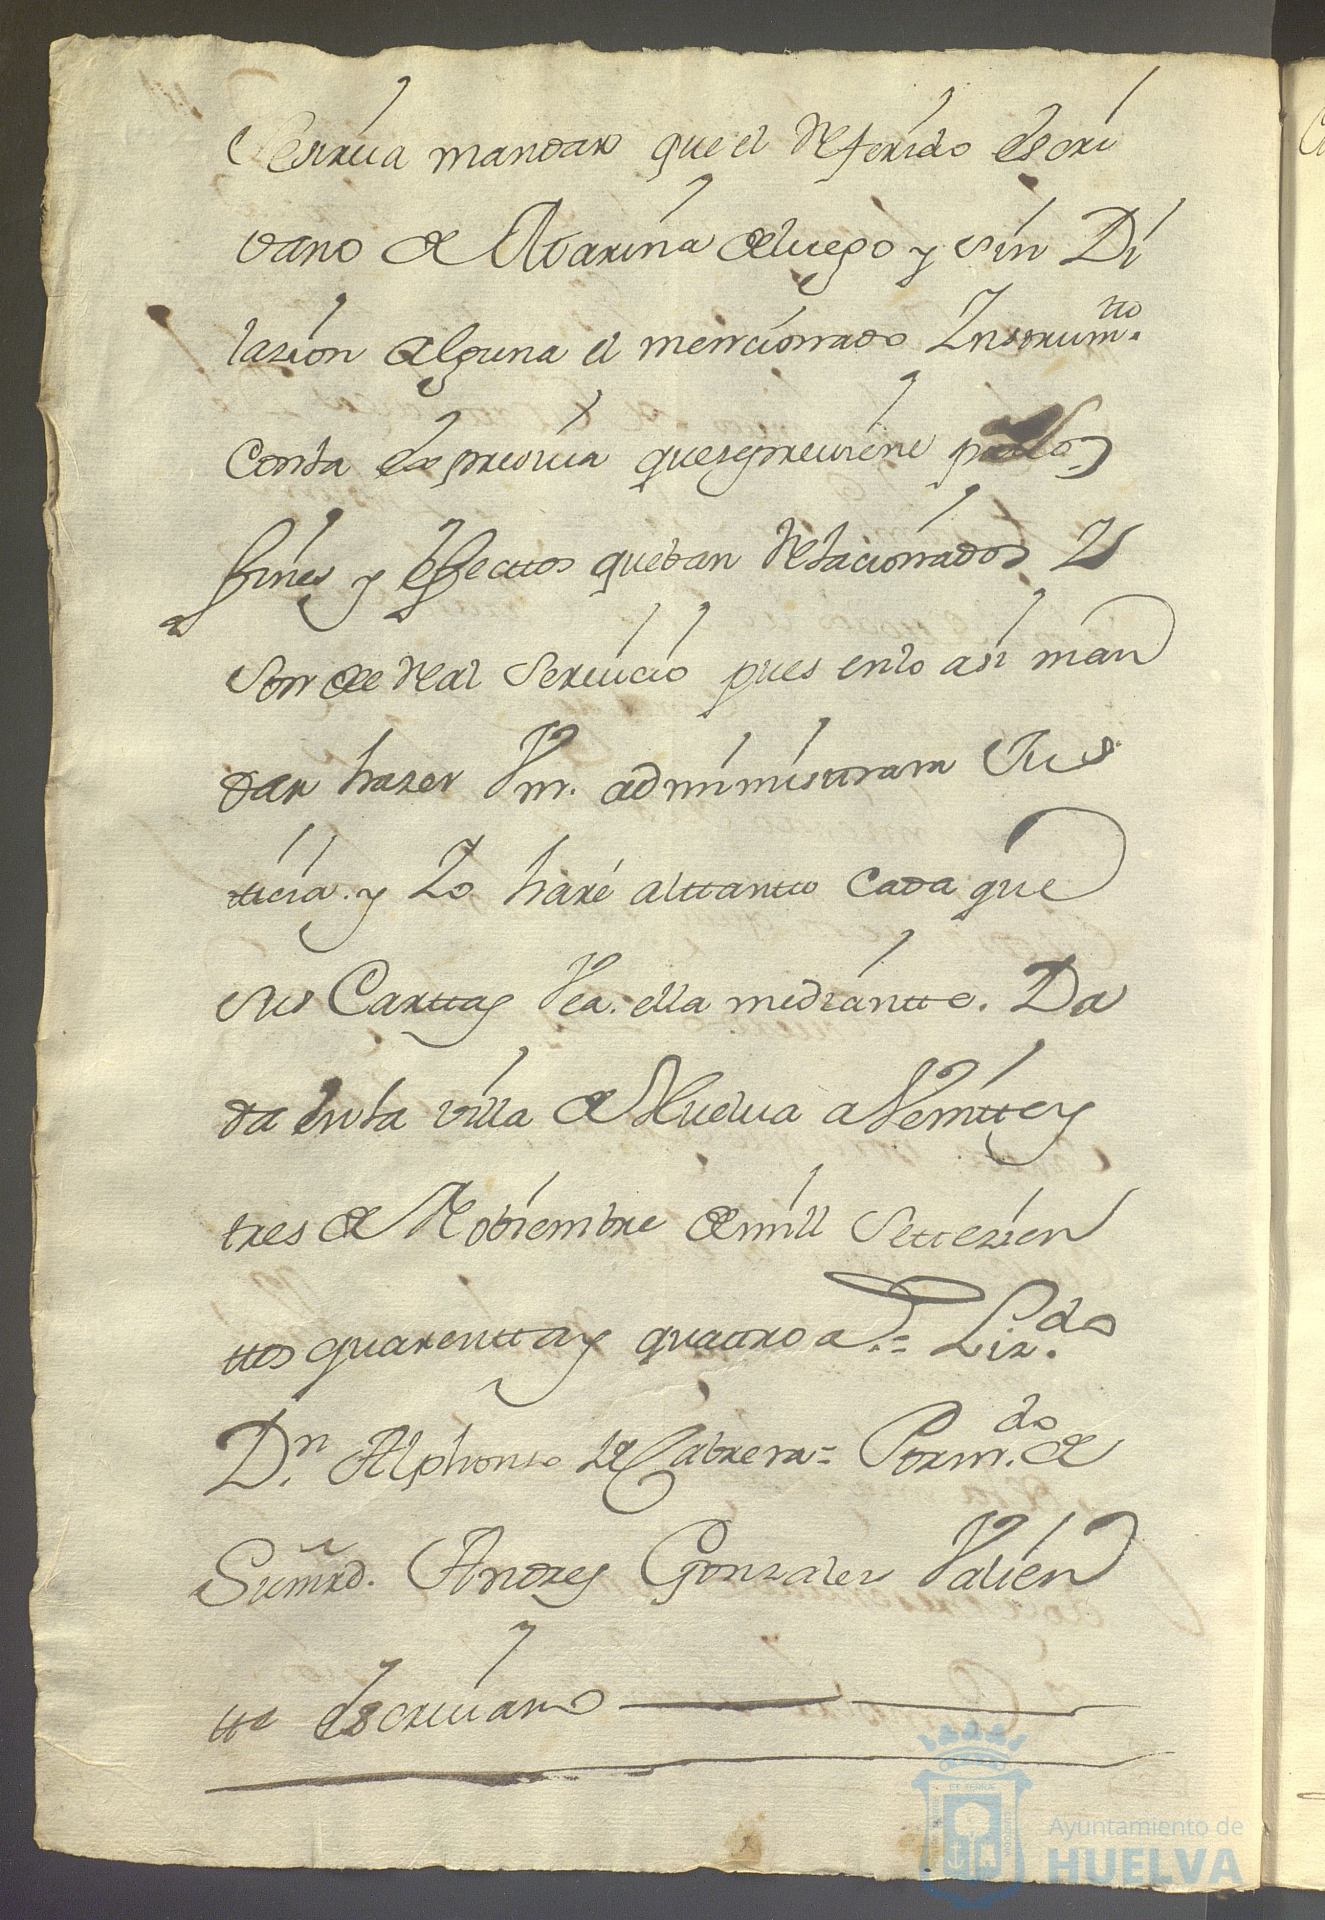 Se sirua mandar que el Referido escri
vano de Marina de luego y sin Di
lazion alguna el mencionado Instrum.tto
con la expresiua que se preuiene para los
fines y efectos quedan Relacionados Y
son de Real Seruicio pues en lo asi man
dar hazer Vm. administrara Jus
ticia. y Yo haré al ttantto cada que
sus Carttas Vea. ella mediantte. Da
da en la villa de Huelua a Veintte y
tres de Nobiembre de mill Settezien
ttos quarentta y quattro a.s = Liz.do
D.n Alphonso de Cabrera = Por m.do de
Su mrd. Andres Gonzales Valien
tte escriuano
Ayuntamiento de
HUELVA